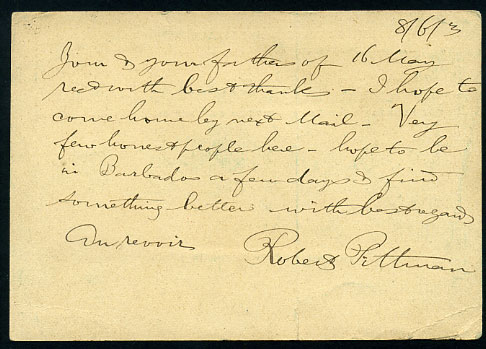 8/6/
Your & your fathers of 16 May
recd with best thank - I hope to
come home by next Mail - Very
few honest people here - hope to be
in Barbados a few days & find
something better with best regards
Au revoir Robert Pittman